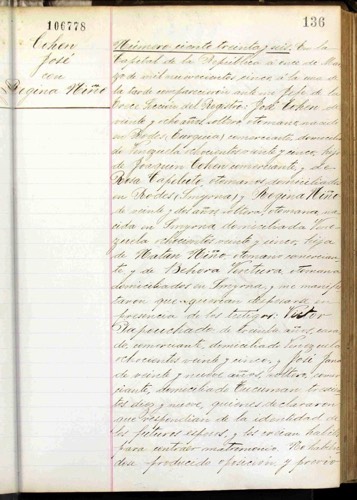 106778
136
Cohen
José
con
Regina Niño
Número ciento treinta y seis. En la
Capital de la República a once de Mar
zo de mil novecientos cinco a la una de
la tarde comparecieron ante mi Jefe de la
Sección del Registro: José Cohen, de
veinte y ocho años, soltero, otomano, nacido
en Rodes (Turquia) comerciante, domicilia
do ochocientos veinte y cinco, hijo
de Joaquin Cohen comerciante, y de
Rosa Capeluto, otomanos, domiciliados
en Rodes (Smyrna) y Regina Niño
de veinte y dos años, soltera, otomana, na
cida en Smyrna domiciliada
ochocientos veinte y cinco, hija
de Natan Niño otomano comercian
te, y de Behora Ventura otomana
domiciliados en Smyrna, y me manifes
taron que querian desposarse en
presencia de los testigos: Victor
de treinta años, casa
do, comerciante, domiciliado
ochocientos veinte y cinco, y José
de veinte y nueve años, soltero, comer
ciante, domiciliado Tucuman trescien
tos diez y nueve, quienes declararon
que respondian de la identidad de
los futuros esposos, y los creian habiles
para contraer matrimonio. No habién
dose producido oposición, y previo